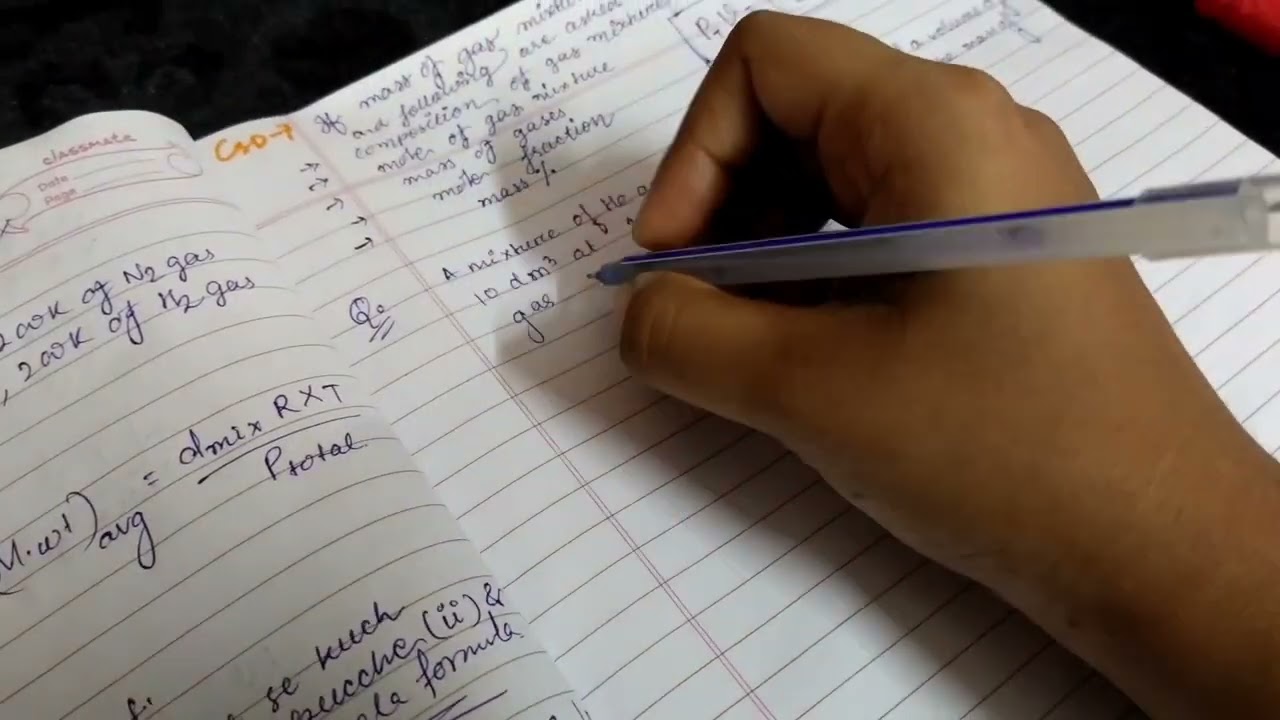 classmate
Date
Page
200K of N2 gas
, 200K of H2 gas
M.wt)avg = dmix RXT
Ptotal
se kuch
(ii) &
formula
CSD-7
If mass of gas
and following are asked
→ composition of gas mixture
→ moles of gas mixture
→ mass of gases
→ mole fraction
→ mass %.
Q. A mixture of He
10 dm3 at
gas
a volume